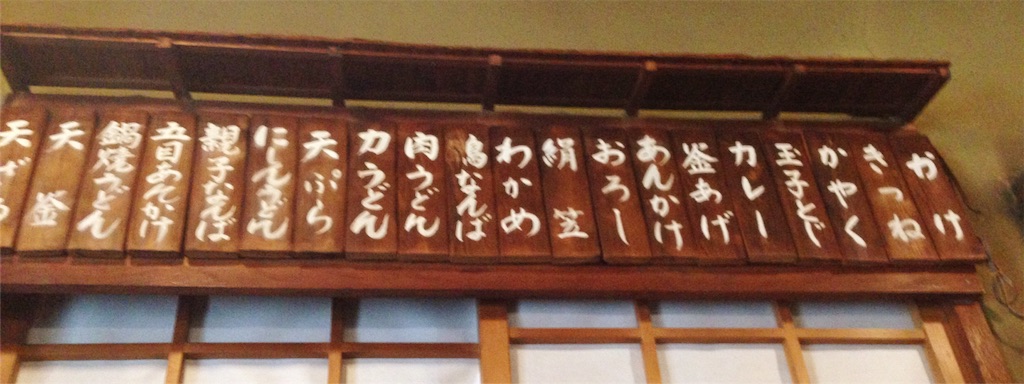 かけ
きつね
かやく
玉子とじ
カレー
釜あげ
あんかけ
おろし
絹笠
わかめ
鳥なんば
肉うどん
力うどん
天ぷら
にしんうどん
親子なんば
五目あんかけ
鍋焼うどん
天釜
天ざる